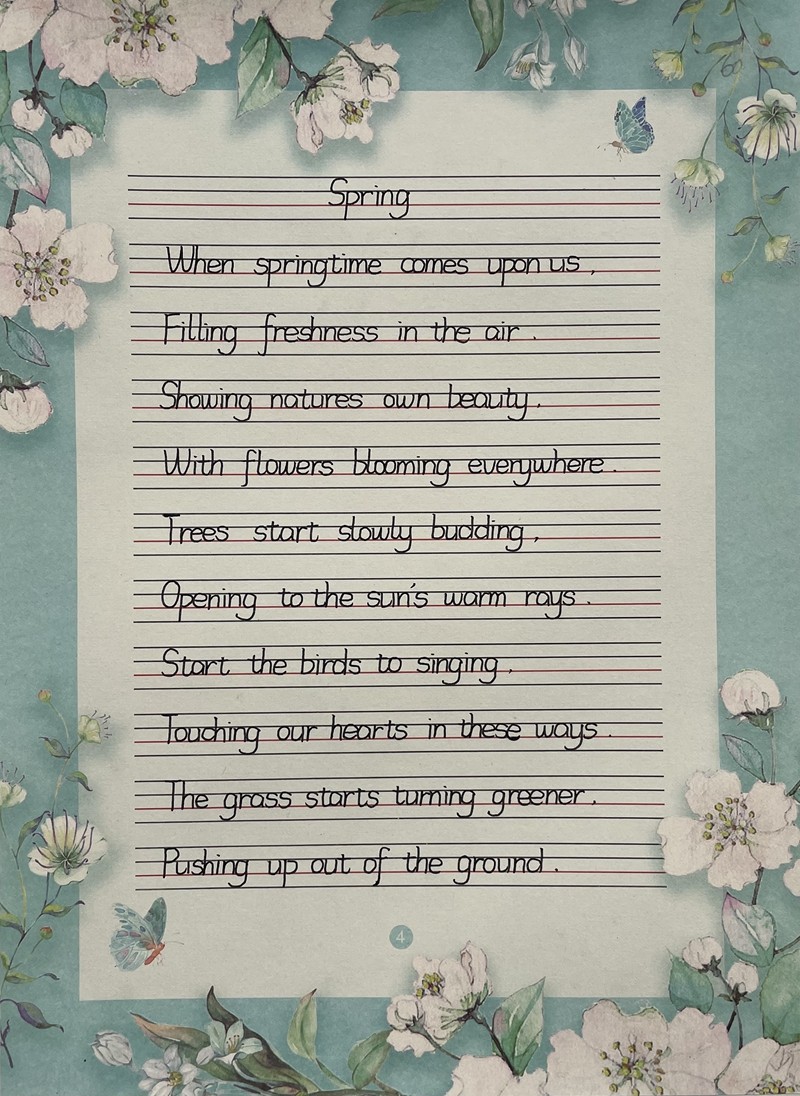 Spring
When springtime comes upon us,
Filling freshness in the air.
Showing natures own beauty,
With flowers blooming everywhere.
Trees start slowly budding,
Opening to the sun's warm rays.
Start the birds to singing,
Touching our hearts in these ways.
The grass starts turning greener,
Pushing up out of the ground.
4